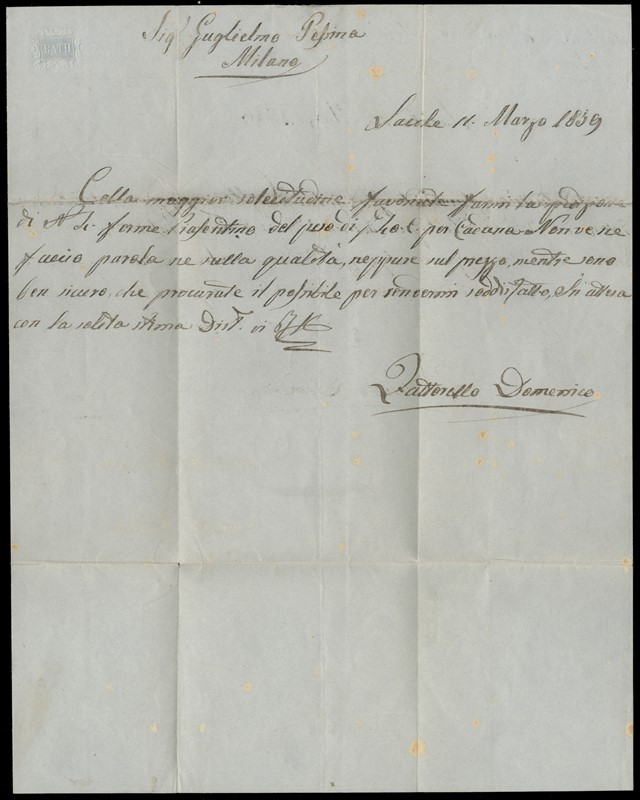 BATH
Sigr Guglielmo Pessina
Milano
Sacile 11. Marzo 1859
Colla maggior solecitudine favorirete farmi la spedizione
di No forme Piasentino del peso di per Caduna Non ve ne
faccio parola ne sulla qualità, neppure sul prezzo, mentre sono
ben sicuro, che procurate il possibile per rendermi soddisfatto, In attesa
con la solita stima Dist. vi
Domenico